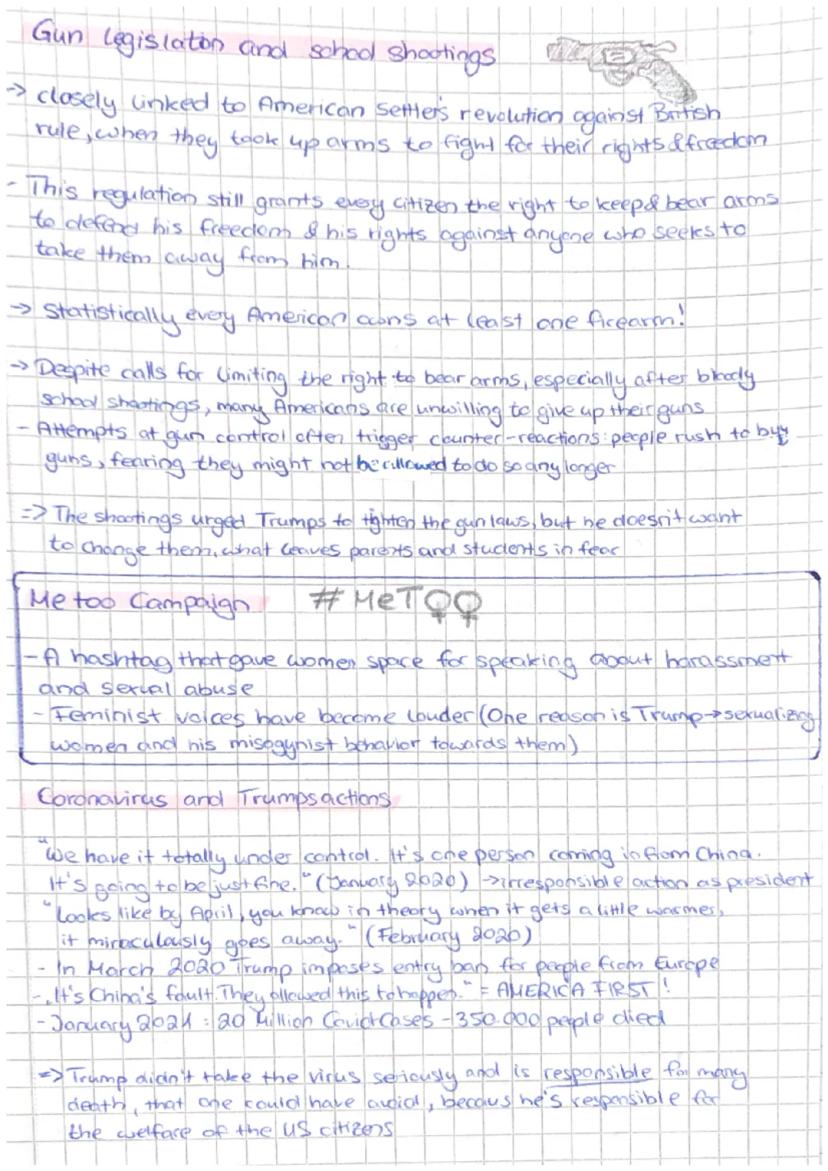 Gun legislation and school shootings
-> closely linked to American Settler's revolution against British
rule, when they took up arms to fight for their rights & freedom
- This regulation still grants every citizen the right to keep & bear arms
to defend his freedom & his rights against anyone who seeks to
take them away from him.
-> Statistically every American owns at least one firearm!
-> Despite calls for limiting the right to bear arms, especially after bloody
school shootings, many Americans are unwilling to give up their guns
- Attempts at gun control often trigger counter-reactions: people rush to buy
guns, fearing they might not be allowed to do so any longer
=> The shootings urged Trumps to tighten the gun laws, but he doesn't want
to change them, what leaves parents and students in fear
Me too Campaign #MeTOO
- A hashtag that gave women space for speaking about harassment
and sexual abuse
- Feminist voices have become louder (One reason is Trump -> sexualizing
women and his misogynist behavior towards them)
Coronavirus and Trumps actions
"We have it totally under control. It's one person coming in from China.
It's going to be just fine." (January 2020) -> irresponsible action as president
"Looks like by April, you know in theory when it gets a little warmer,
it miraculously goes away." (February 2020)
- In March 2020 Trump imposes entry ban for people from Europe
- „It's China's fault. They allowed this to happen." = AMERICA FIRST!
- January 2021: 20 Million Covid Cases - 350.000 people died
=> Trump didn't take the virus seriously and is responsible for many
death, that one could have avoid, becaus he's responsible for
the welfare of the US citizens